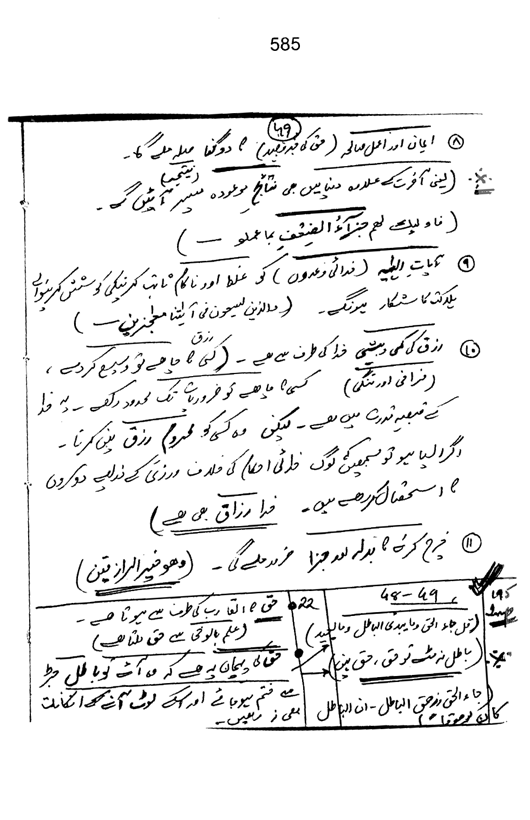 585
49
⑧ ایمان اور اعمال صالحہ (حق کی جدوجہد) کا دوگنا صلہ ملے گا۔
(یعنی آخرت کے علاوہ دنیا میں بھی نتائج موعودہ میسر آئیں گے۔
(نتیجہ)
(فاولئک لھم جزآءُ الضِّعْفِ بما عملو —)
⑨ آیاتِ الٰہیہ (خدائی وعدوں) کو غلط اور ناکام ثابت کرنے کی کوشش کرنیوالے
ہلاکت کا شکار ہونگے۔ (والذین یسعون فی آیٰتنا معٰجزین —)
⑩ رزق کی کمی و بیشی خدا کی طرف سے ہے۔ (کسی کا چاہے تو وسیع کردے،
رزق
(فراخی اور تنگی) کسی کا چاہے تو ضروریات تک محدود رکھے۔ یہ خدا
کے قبضہ قدرت میں ہے۔ لیکن وہ کسی کو محروم رزق نہیں کرتا۔
اگر ایسا ہو تو سمجھیں کہ لوگ خدائی احکام کی خلاف ورزی کے ذریعے دوسروں
کا استحصال کر رہے ہیں۔ خدا رزاق بھی ہے)
⑪ خرچ کرنے کا بدلہ اور جزا ضرور ملے گی۔ (وھو خیر الرازقین)
48-49
(قل جاء الحق وما یبدئ الباطل وما یعید)
باطل نہ مٹے تو حق، حق نہیں)
(جاء الحق وزھق الباطل۔ ان الباطل
کان زھوقا)
22 حق کا القا رب کی طرف سے ہوتا ہے۔
(علم بالوحی سے حق ملتا ہے)
حق کی پہچان یہ ہے کہ وہ آئے تو باطل جڑ
سے ختم ہو جائے اور اسکے لوٹ آنے کے امکانات
بھی نہ رہیں۔